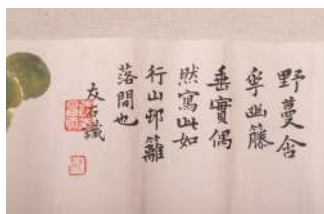 野蔓含
寒幽籐
垂實偶
然寫此如
行山邨籬
落間也
友石識